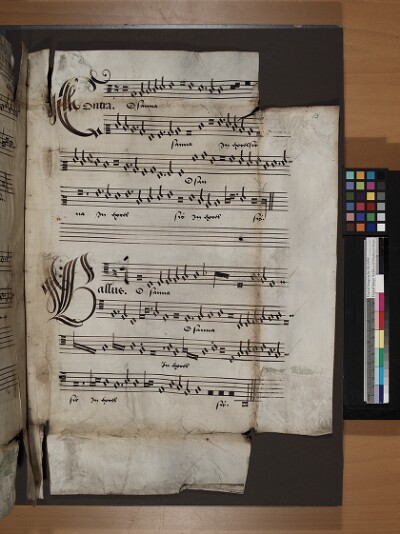 Contra. Osanna
sanna In excelsis
Osan
na In excel sis In excel sis.
Bassus. O sanna
Osanna
In excel
sis In excel sis.